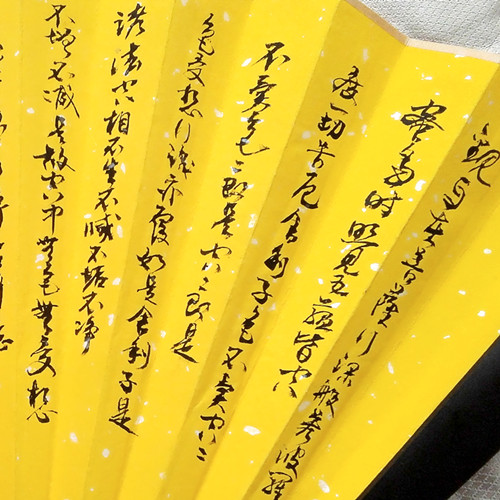 觀自在菩薩行深般若波羅
蜜多時照見五蘊皆空
度一切苦厄舍利子色不異空〻
不異色〻即是空〻即是
色受想行識亦復如是舍利子是
諸法空相不生不滅不垢不淨
不增不減是故空中無色無受想